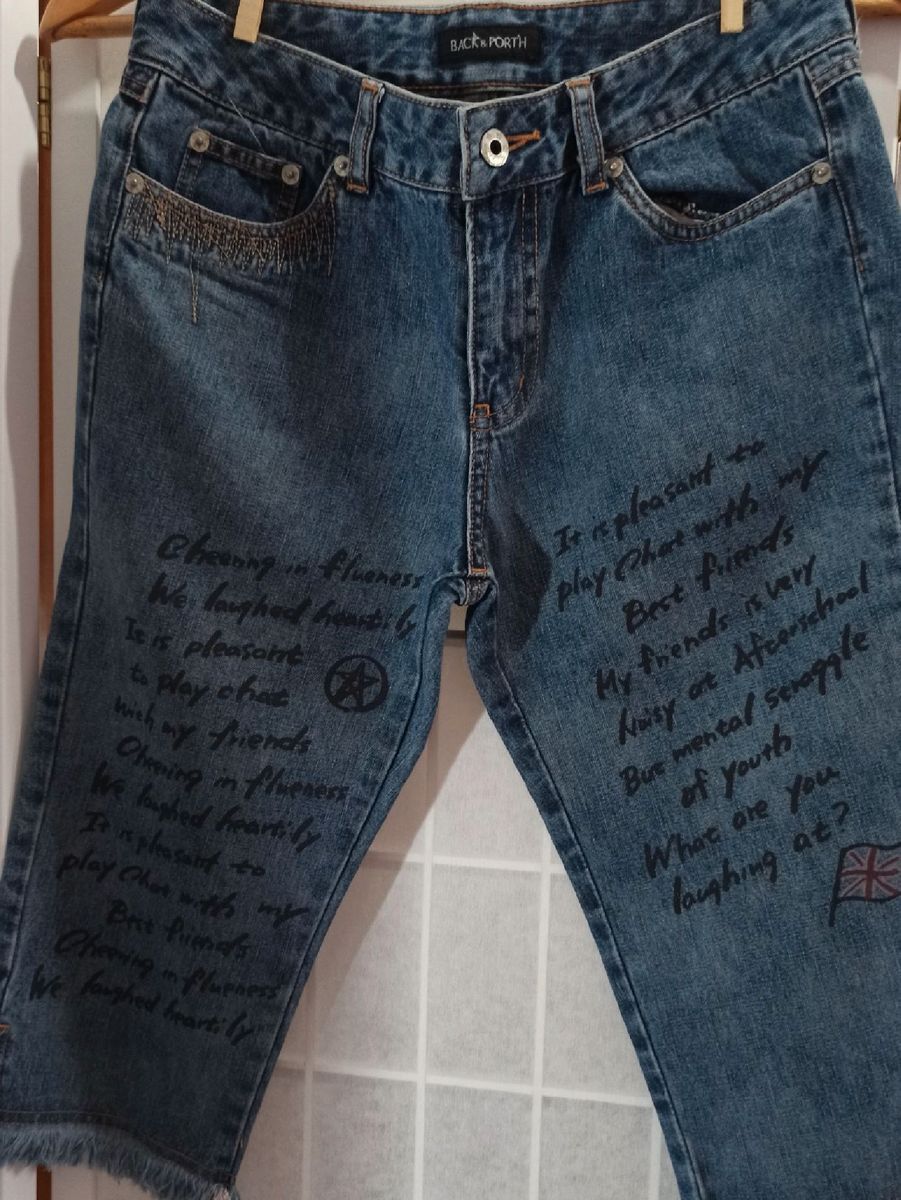 BACK & PORTH
Cheering in flueness
We laughed heartily
It is pleasant
to play chat
with my friends
Cheering in flueness
We laughed heartily
It is pleasant to
play Chat with my
Best friends
Cheering in flueness
We laughed heartily
It is pleasant to
play Chat with my
Best friends
My friends is very
Noisy at Afterschool
But mental straggle
of youth
What are you
laughing at?